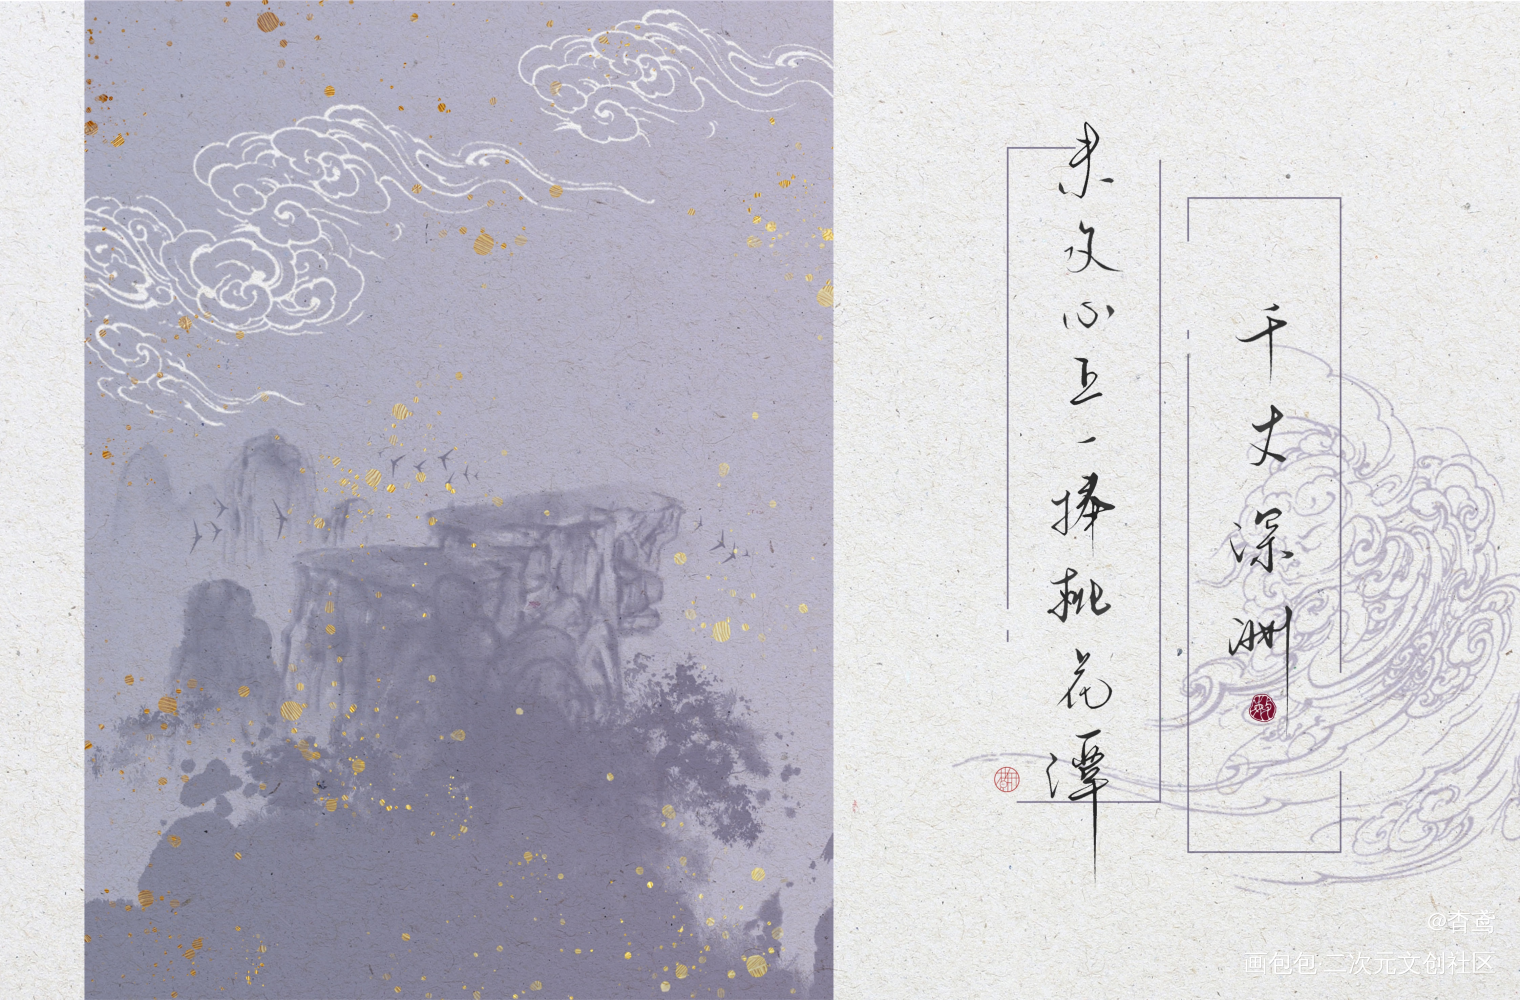 千丈深渊
未及心上一捧桃花潭
@杳鸢
画包包·二次元文创社区